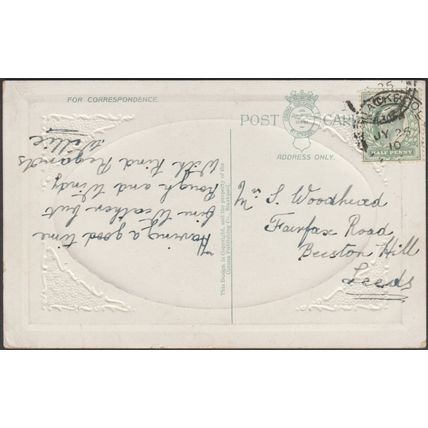 FOR CORRESPONDENCE.
Having a good time
Fine Weather but
Rough and Windy
With Kind Regards
Willie
This Design is Copyright, and the property of the
POST CARD
ADDRESS ONLY.
BLACKPOOL
JY 25
10
HALF PENNY
S. Woodhead
Fairfax Road
Beeston Hill
Leeds